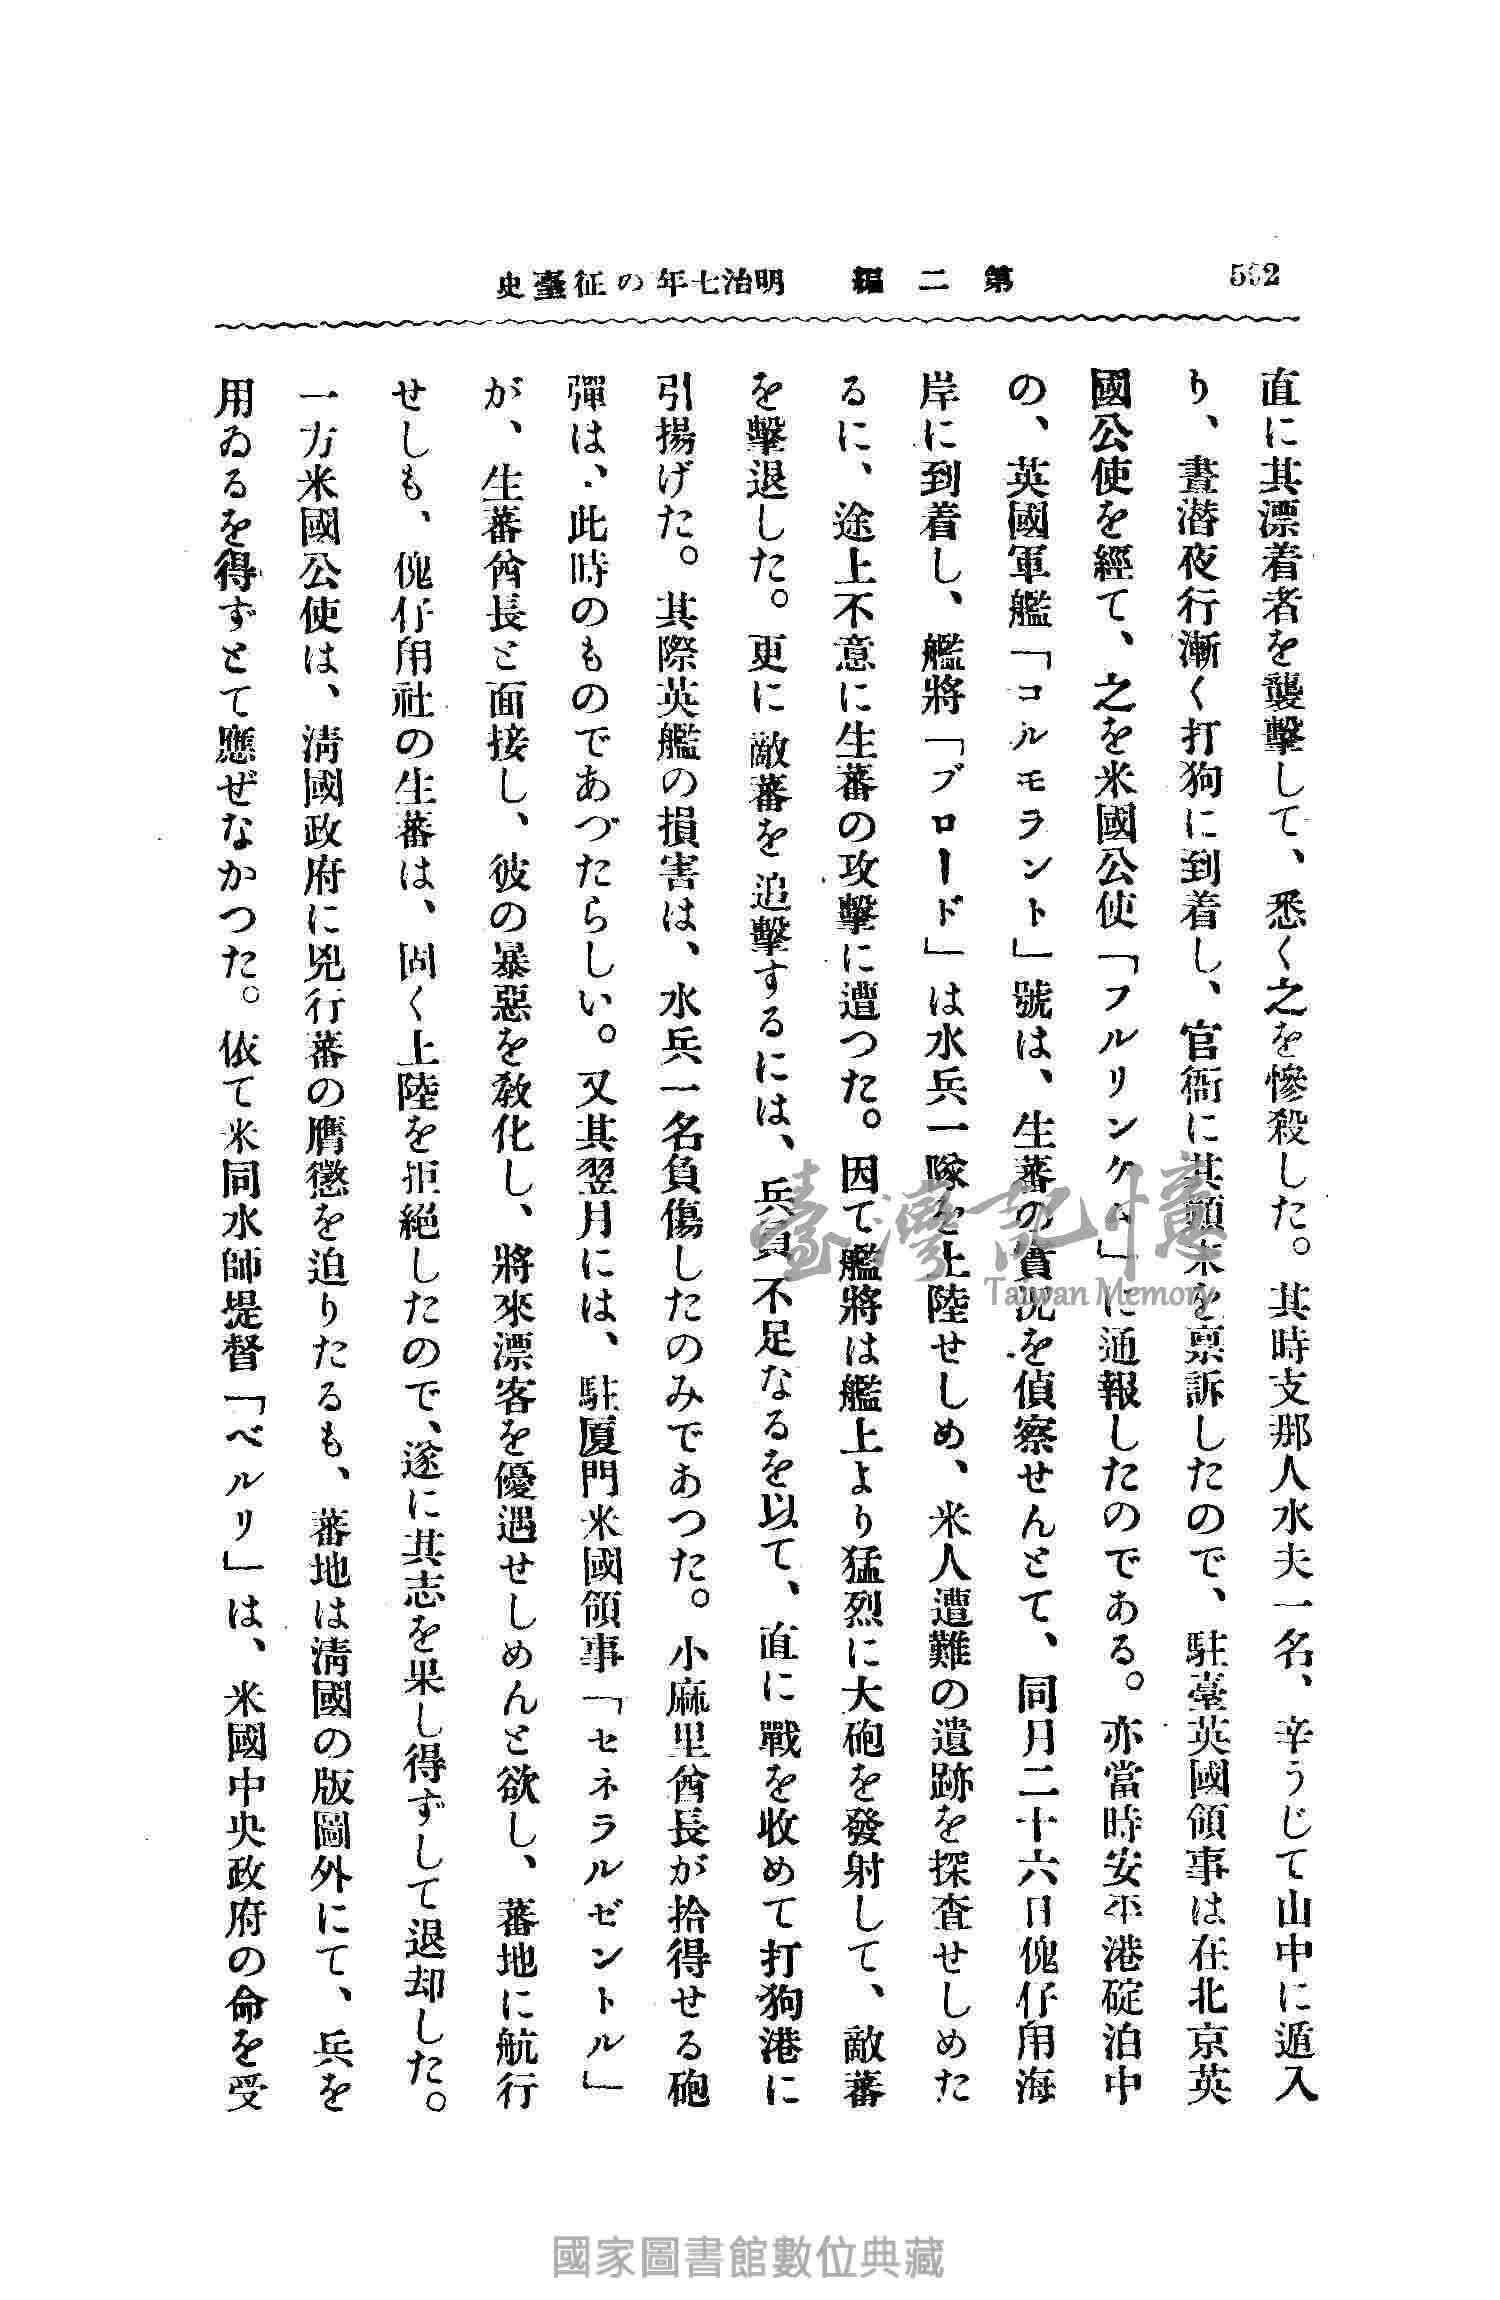 552
第二編 明治七年の征臺史
直に其漂着者を襲擊して、悉く之を慘殺した。其時支那人水夫一名、辛うじて山中に遁入
り、晝潜夜行漸く打狗に到着し、官衙に其顚末を稟訴したので、駐臺英國領事は在北京英
國公使を經て、之を米國公使「フルリンケム」に通報したのである。亦當時安平港碇泊中
の、英國軍艦「コルモラント」號は、生蕃の實況を偵察せんとて、同月二十六日傀仔用海
岸に到着し、艦將「ブロード」は水兵一隊を上陸せしめ、米人遭難の遺跡を探査せしめた
るに、途上不意に生蕃の攻擊に遭つた。因て艦將は艦上より猛烈に大砲を發射して、敵蕃
を擊退した。更に敵蕃を追擊するには、兵員不足なるを以て、直に戰を收めて打狗港に
引揚げた。其際英艦の損害は、水兵一名負傷したのみであつた。小麻里酋長が拾得せる砲
彈は、此時のものであづたらしい。又其翌月には、駐厦門米國領事「セネラルゼントル」
が、生蕃酋長と面接し、彼の暴惡を敎化し、將來漂客を優遇せしめんと欲し、蕃地に航行
せしも、傀仔用社の生蕃は、固く上陸を拒絕したので、遂に其志を果し得ずして退却した。
一方米國公使は、淸國政府に兇行蕃の膺懲を迫りたるも、蕃地は淸國の版圖外にて、兵を
用ゐるを得ずとて應ぜなかつた。依て米同水師堤督「ベルリ」は、米國中央政府の命を受
臺灣記憶
Taiwan Memory
國家圖書館數位典藏